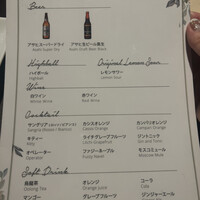 Beer
アサヒスーパードライ
Asahi Super Dry
アサヒ生ビール黒生
Highball
ハイボール
Highball
Original Lemon Sour
レモンサワー
Lemon Sour
Wine
白ワイン
White Wine
赤ワイン
Red Wine
Cocktail
サングリア
カシスオレンジ
Cassis Orange
カンパリオレンジ
Campari Orange
キティー
Kitty
ライチグレープフルーツ
Lychee Grapefruit
ジントニック
オペレーター
Operator
ファジーネーブル
Fuzzy Navel
モスコミュール
Moscow Mule
Soft Drink
烏龍茶
Oolong Tea
オレンジ
Orange Juice
コーラ
Cola
マンゴー
グレープフルーツ
ジンジャーエール